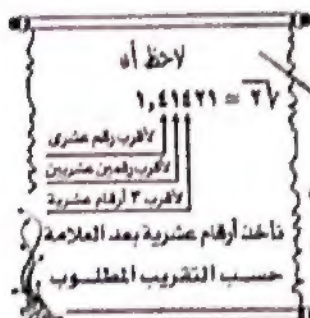 لاحظ أن
√٢ = ١,٤١٤٢١
لأقرب رقم عشرى
لأقرب رقمين عشريين
لأقرب ٣ أرقام عشرية
نأخذ أرقام عشرية بعد العلامة
حسب التقريب المطلوب